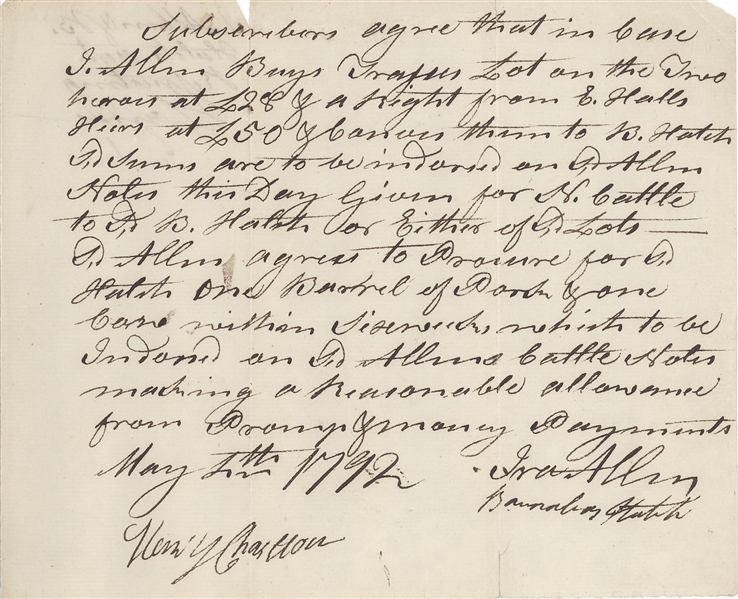 Subscribors agree that in Case
I. Allen Buys Lot on the Two
heroas at £28 & a Right from E. Halls
Hiers at £50 & Convey them to B. Hatch
Sd Sums are to be indorsed on Sd Allen
Notes this Day Given for N. Cattle
to Sd B. Hatch or Either of Sd Lots —
Sd Allen agrees to Procure for Sd
Hatch One Barrel of Pork & one
Cow within Sixweeks, which to be
Indorsed on Sd Allens Cattle Notes
making a Reasonable allowance
from Promp & money Payments
May 1792 Ira Allen
Barnabas Hatch